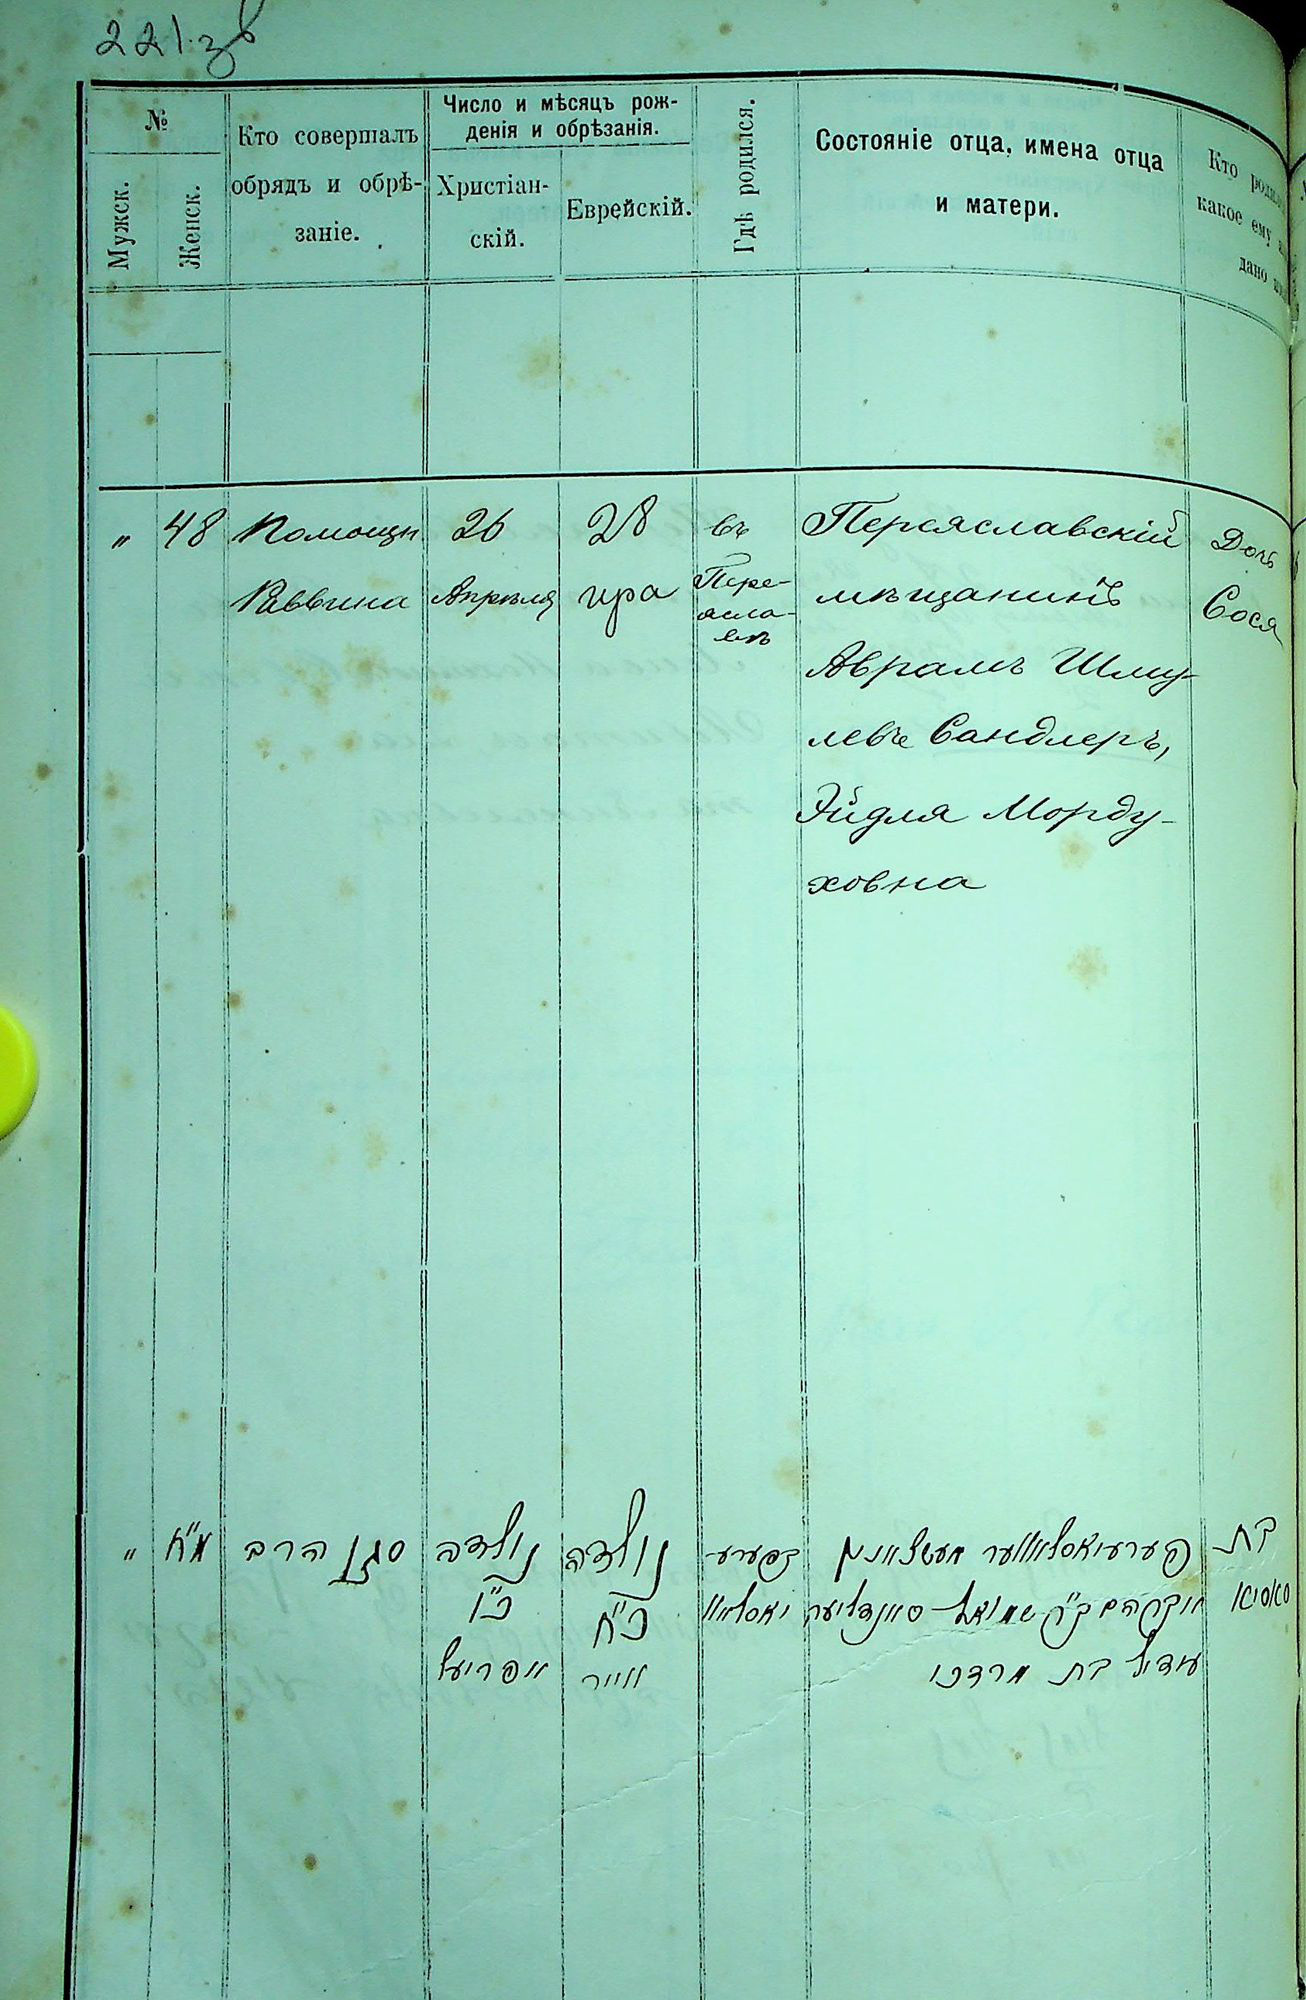 221 зв
№
Мужск.
Женск.
Кто совершалъ
обрядъ и обрѣ-
заніе.
Число и мѣсяцъ рож-
денія и обрѣзанія.
Христіан-
скій.
Еврейскій.
Гдѣ родился.
Состояніе отца, имена отца
и матери.
Кто
какое ему
дано
"
48
Помощн
Раввина
26
Апрѣля
28
ира
въ
Пере-
ясла-
влѣ
Переяславскій
мѣщанинъ
Аврамъ Шму-
левъ Сандлеръ,
Эйдля Морду-
ховна
Дочь
Сося
"
מ״ח
סגן הרב
נולדה
כ״ו
אפריעל
נולדה
כ״ח
אייר
בפערע-
יאסלאוו
פערעיאסלאווער מעשצאנין
אברהם ב״ר שמואל סאנדליער
עידיל בת מרדכי
בת
סאסיא